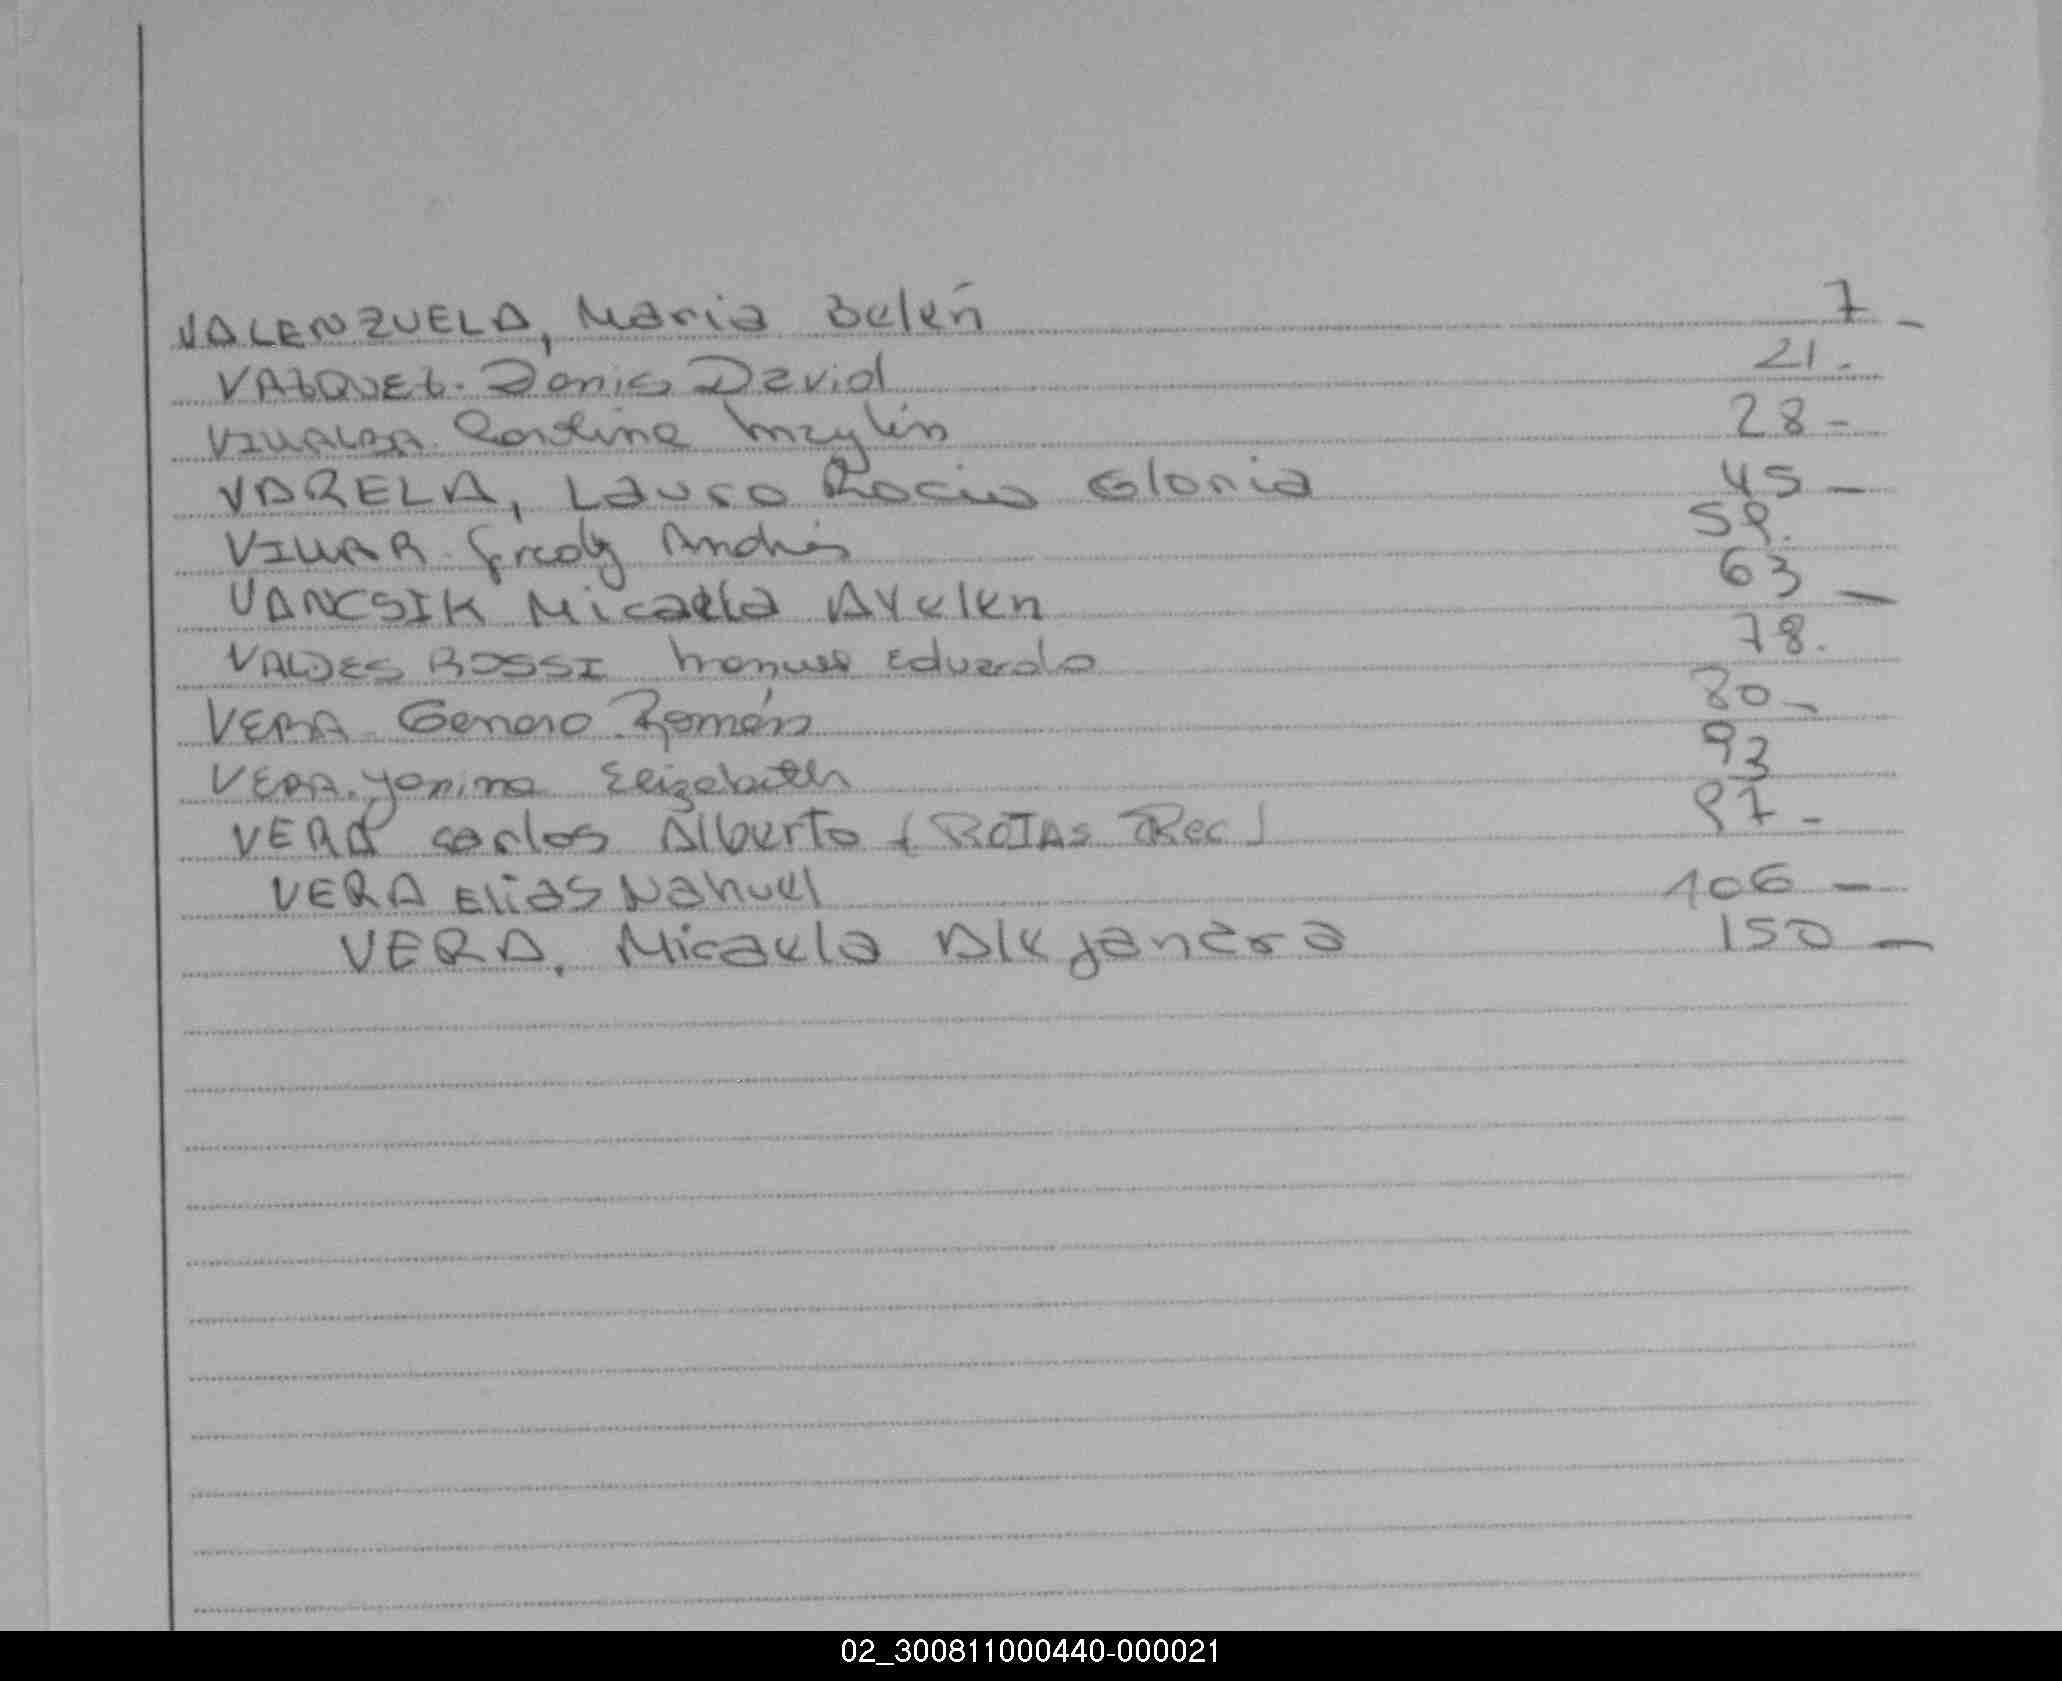 VALENZUELA, Maria Belén 7 -
VAZQUEZ. Denis David 21.
VILLALBA. Carolina Maylén 28 -
VARELA, Laura Rocio Gloria 45 -
VILLAR. Fredy Andrés 59.
VANCSIK Micaela Ayelen 63 -
VALDES ROSSI Manuel Eduardo 78.
VERA. Genaro Román 80 -
VERA. Yanina Elizabeth 93
VERA Carlos Alberto (ROJAS Rec) 97 -
VERA Elias Nahuel 106 -
VERA, Micaela Alejandra 150 -
02_300811000440-000021